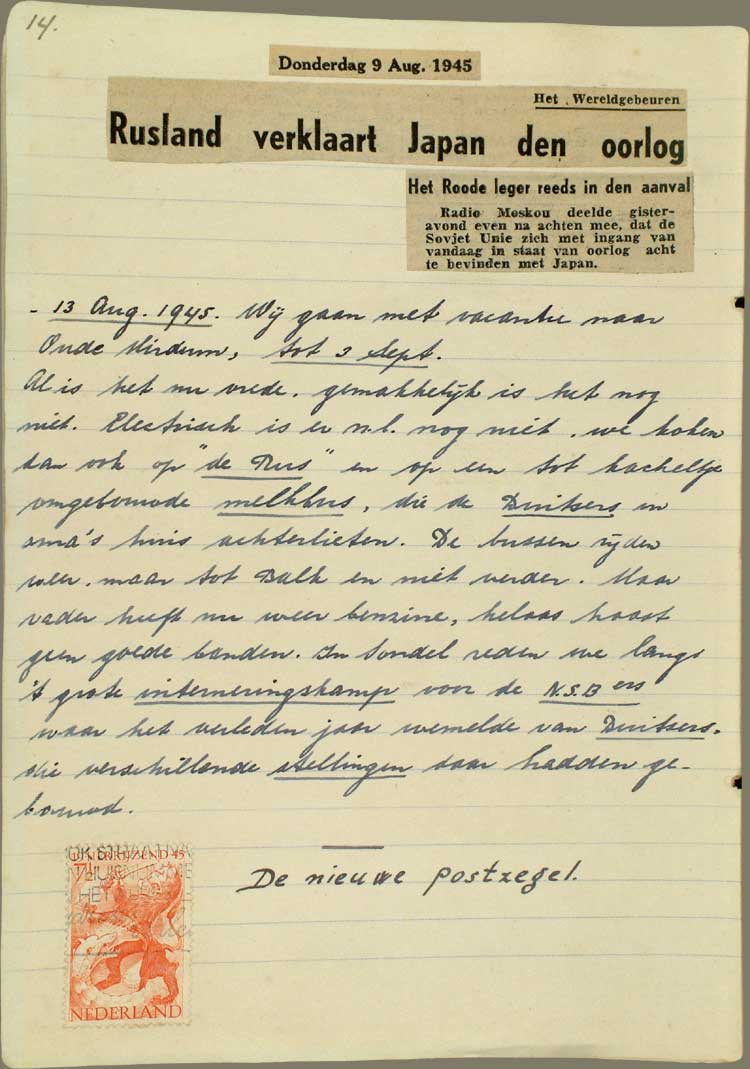 14.
Donderdag 9 Aug. 1945
Het Wereldgebeuren
Rusland verklaart Japan den oorlog
Het Roode leger reeds in den aanval
Radio Moskou deelde gister-
avond even na achten mee, dat de
Sovjet Unie zich met ingang van
vandaag in staat van oorlog acht
te bevinden met Japan.
- 13 Aug. 1945. Wij gaan met vacantie naar
Oude Mirdum, tot 3 Sept.
Al is het nu vrede, gemakkelijk is het nog
niet. Electrisch is er n.l. nog niet, we koken
dan ook op "de Rus" en op een tot kacheltje
omgebouwde melkbus, die de Duitsers in
oma's huis achterlieten. De bussen rijden
weer, maar tot Balk en niet verder. Maar
vader heeft nu weer benzine, helaas haast
geen goede banden. In Sondel reden we langs
't grote interneringskamp voor de N.S.B ers
waar het verleden jaar wemelde van Duitsers,
die verschillende stellingen daar hadden ge-
bouwd.
De nieuwe postzegel.
HERRIJZEND 45
NEDERLAND